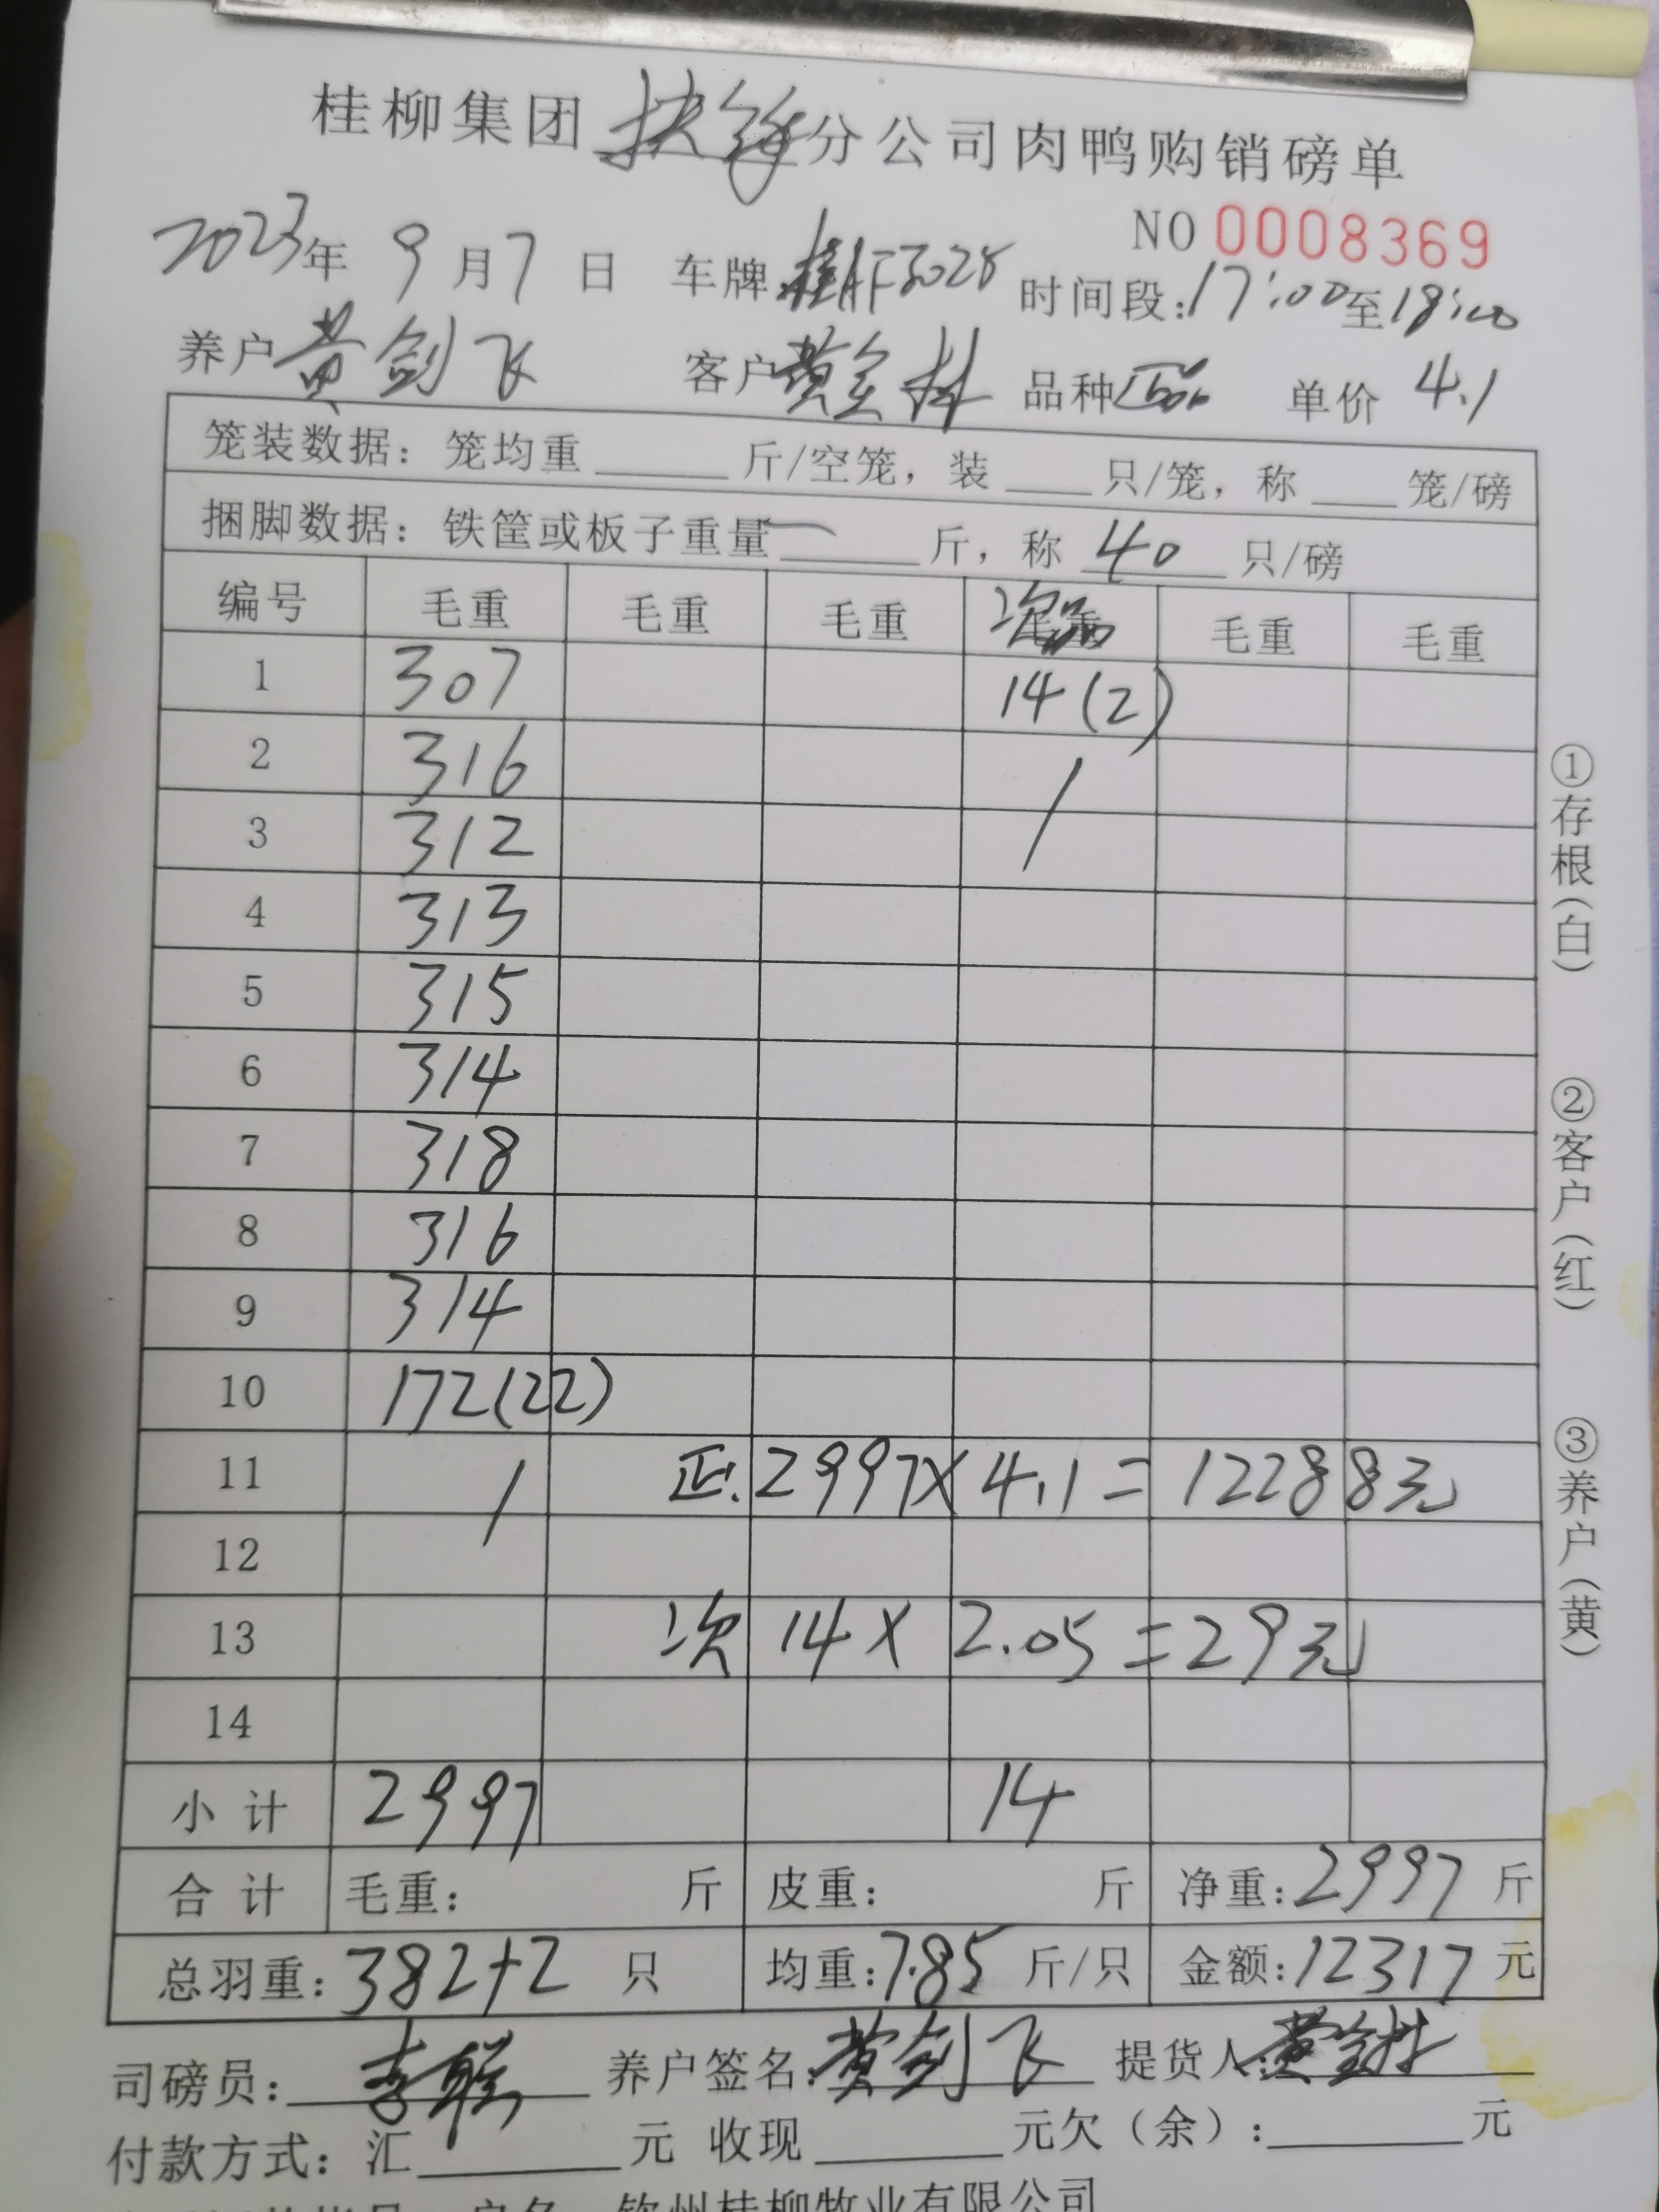 桂柳集团 扶绥 分公司肉鸭购销磅单
NO 0008369
2023年 9月7日 车牌: 桂AF3028 时间段: 17:00至18:00
养户 黄剑飞 客户 黄金林 品种 单价 4.1
笼装数据: 笼均重____斤/空笼, 装____只/笼, 称____笼/磅
捆脚数据: 铁筐或板子重量 — 斤, 称 40 只/磅
编号 毛重 毛重 毛重 次品 毛重 毛重
1 307 14(2)
2 316 /
3 312
4 313
5 315
6 314
7 318
8 316
9 314
10 172(22)
11 / 正: 2997×4.1=12288元
12
13 次 14×2.05=29元
14
小计 2997 14
合计 毛重: 斤 皮重: 斤 净重: 2997 斤
总羽重: 382+2 只 均重: 7.85 斤/只 金额: 12317 元
司磅员: 李聪 养户签名: 黄剑飞 提货人: 黄金林
付款方式: 汇____元 收现____元欠(余):____元
户名 钦州桂柳牧业有限公司
①存根(白)
②客户(红)
③养户(黄)